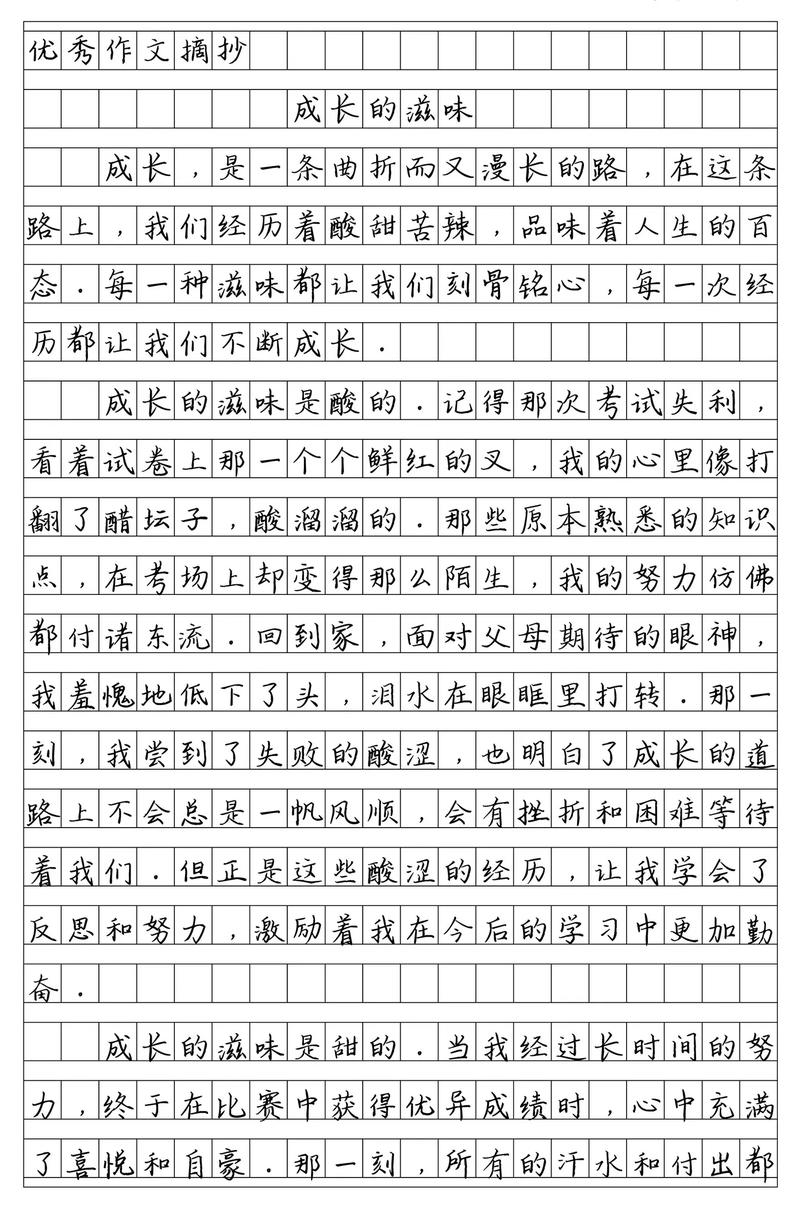 优秀作文摘抄
成长的滋味
成长，是一条曲折而又漫长的路，在这条
路上，我们经历着酸甜苦辣，品味着人生的百
态．每一种滋味都让我们刻骨铭心，每一次经
历都让我们不断成长．
成长的滋味是酸的．记得那次考试失利，
看着试卷上那一个个鲜红的叉，我的心里像打
翻了醋坛子，酸溜溜的．那些原本熟悉的知识
点，在考场上却变得那么陌生，我的努力仿佛
都付诸东流．回到家，面对父母期待的眼神，
我羞愧地低下了头，泪水在眼眶里打转．那一
刻，我尝到了失败的酸涩，也明白了成长的道
路上不会总是一帆风顺，会有挫折和困难等待
着我们．但正是这些酸涩的经历，让我学会了
反思和努力，激励着我在今后的学习中更加勤
奋．
成长的滋味是甜的．当我经过长时间的努
力，终于在比赛中获得优异成绩时，心中充满
了喜悦和自豪．那一刻，所有的汗水和付出都